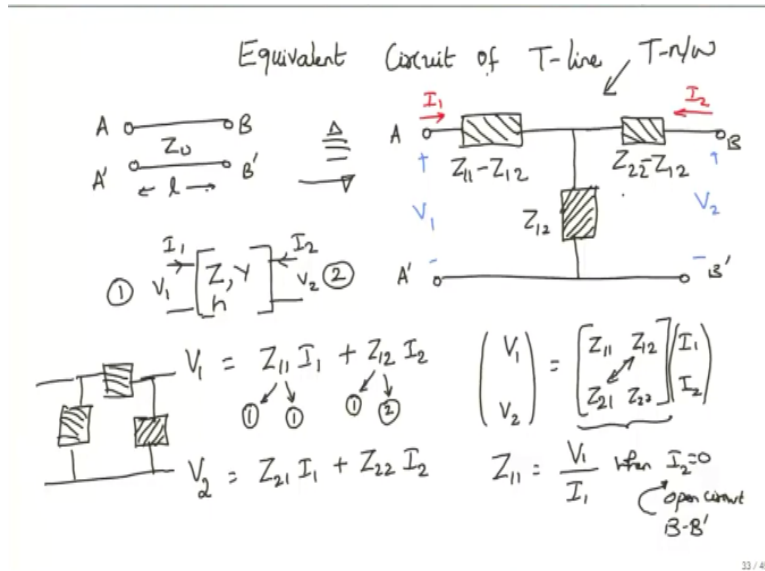 Equivalent Circuit of T-line T-n/w
A B
Z0
A' B'
l
Δ
I1 I2
A B
Z11-Z12 Z22-Z12
+ +
V1 Z12 V2
- -
A' B'
I1 I2
① V1 Z, Y V2 ②
h
V1 = Z11 I1 + Z12 I2
① ① ① ②
V2 = Z21 I1 + Z22 I2
(V1 V2) = [Z11 Z12 Z21 Z22] (I1 I2)
Z11 = V1/I1 when I2=0
open circuit
B-B'